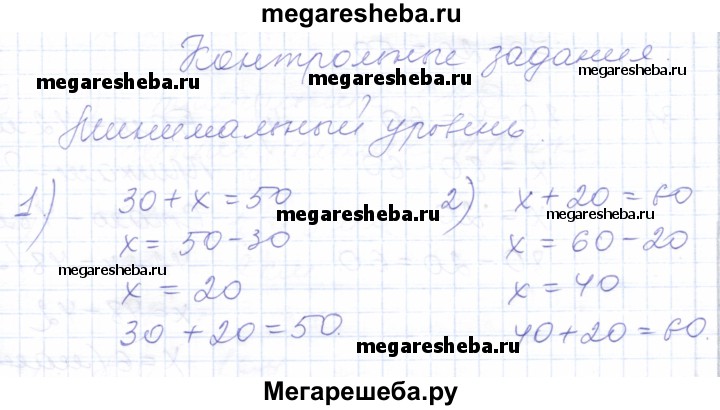 megaresheba.ru
Контрольные задания.
megaresheba.ru megaresheba.ru megaresheba.ru
Минимальный уровень.
1) 30 + x = 50 2) x + 20 = 60
megaresheba.ru megaresheba.ru
x = 50 - 30 x = 60 - 20
megaresheba.ru
x = 20 x = 40
30 + 20 = 50. 40 + 20 = 60.
megaresheba.ru megaresheba.ru
Мегарешеба.ру